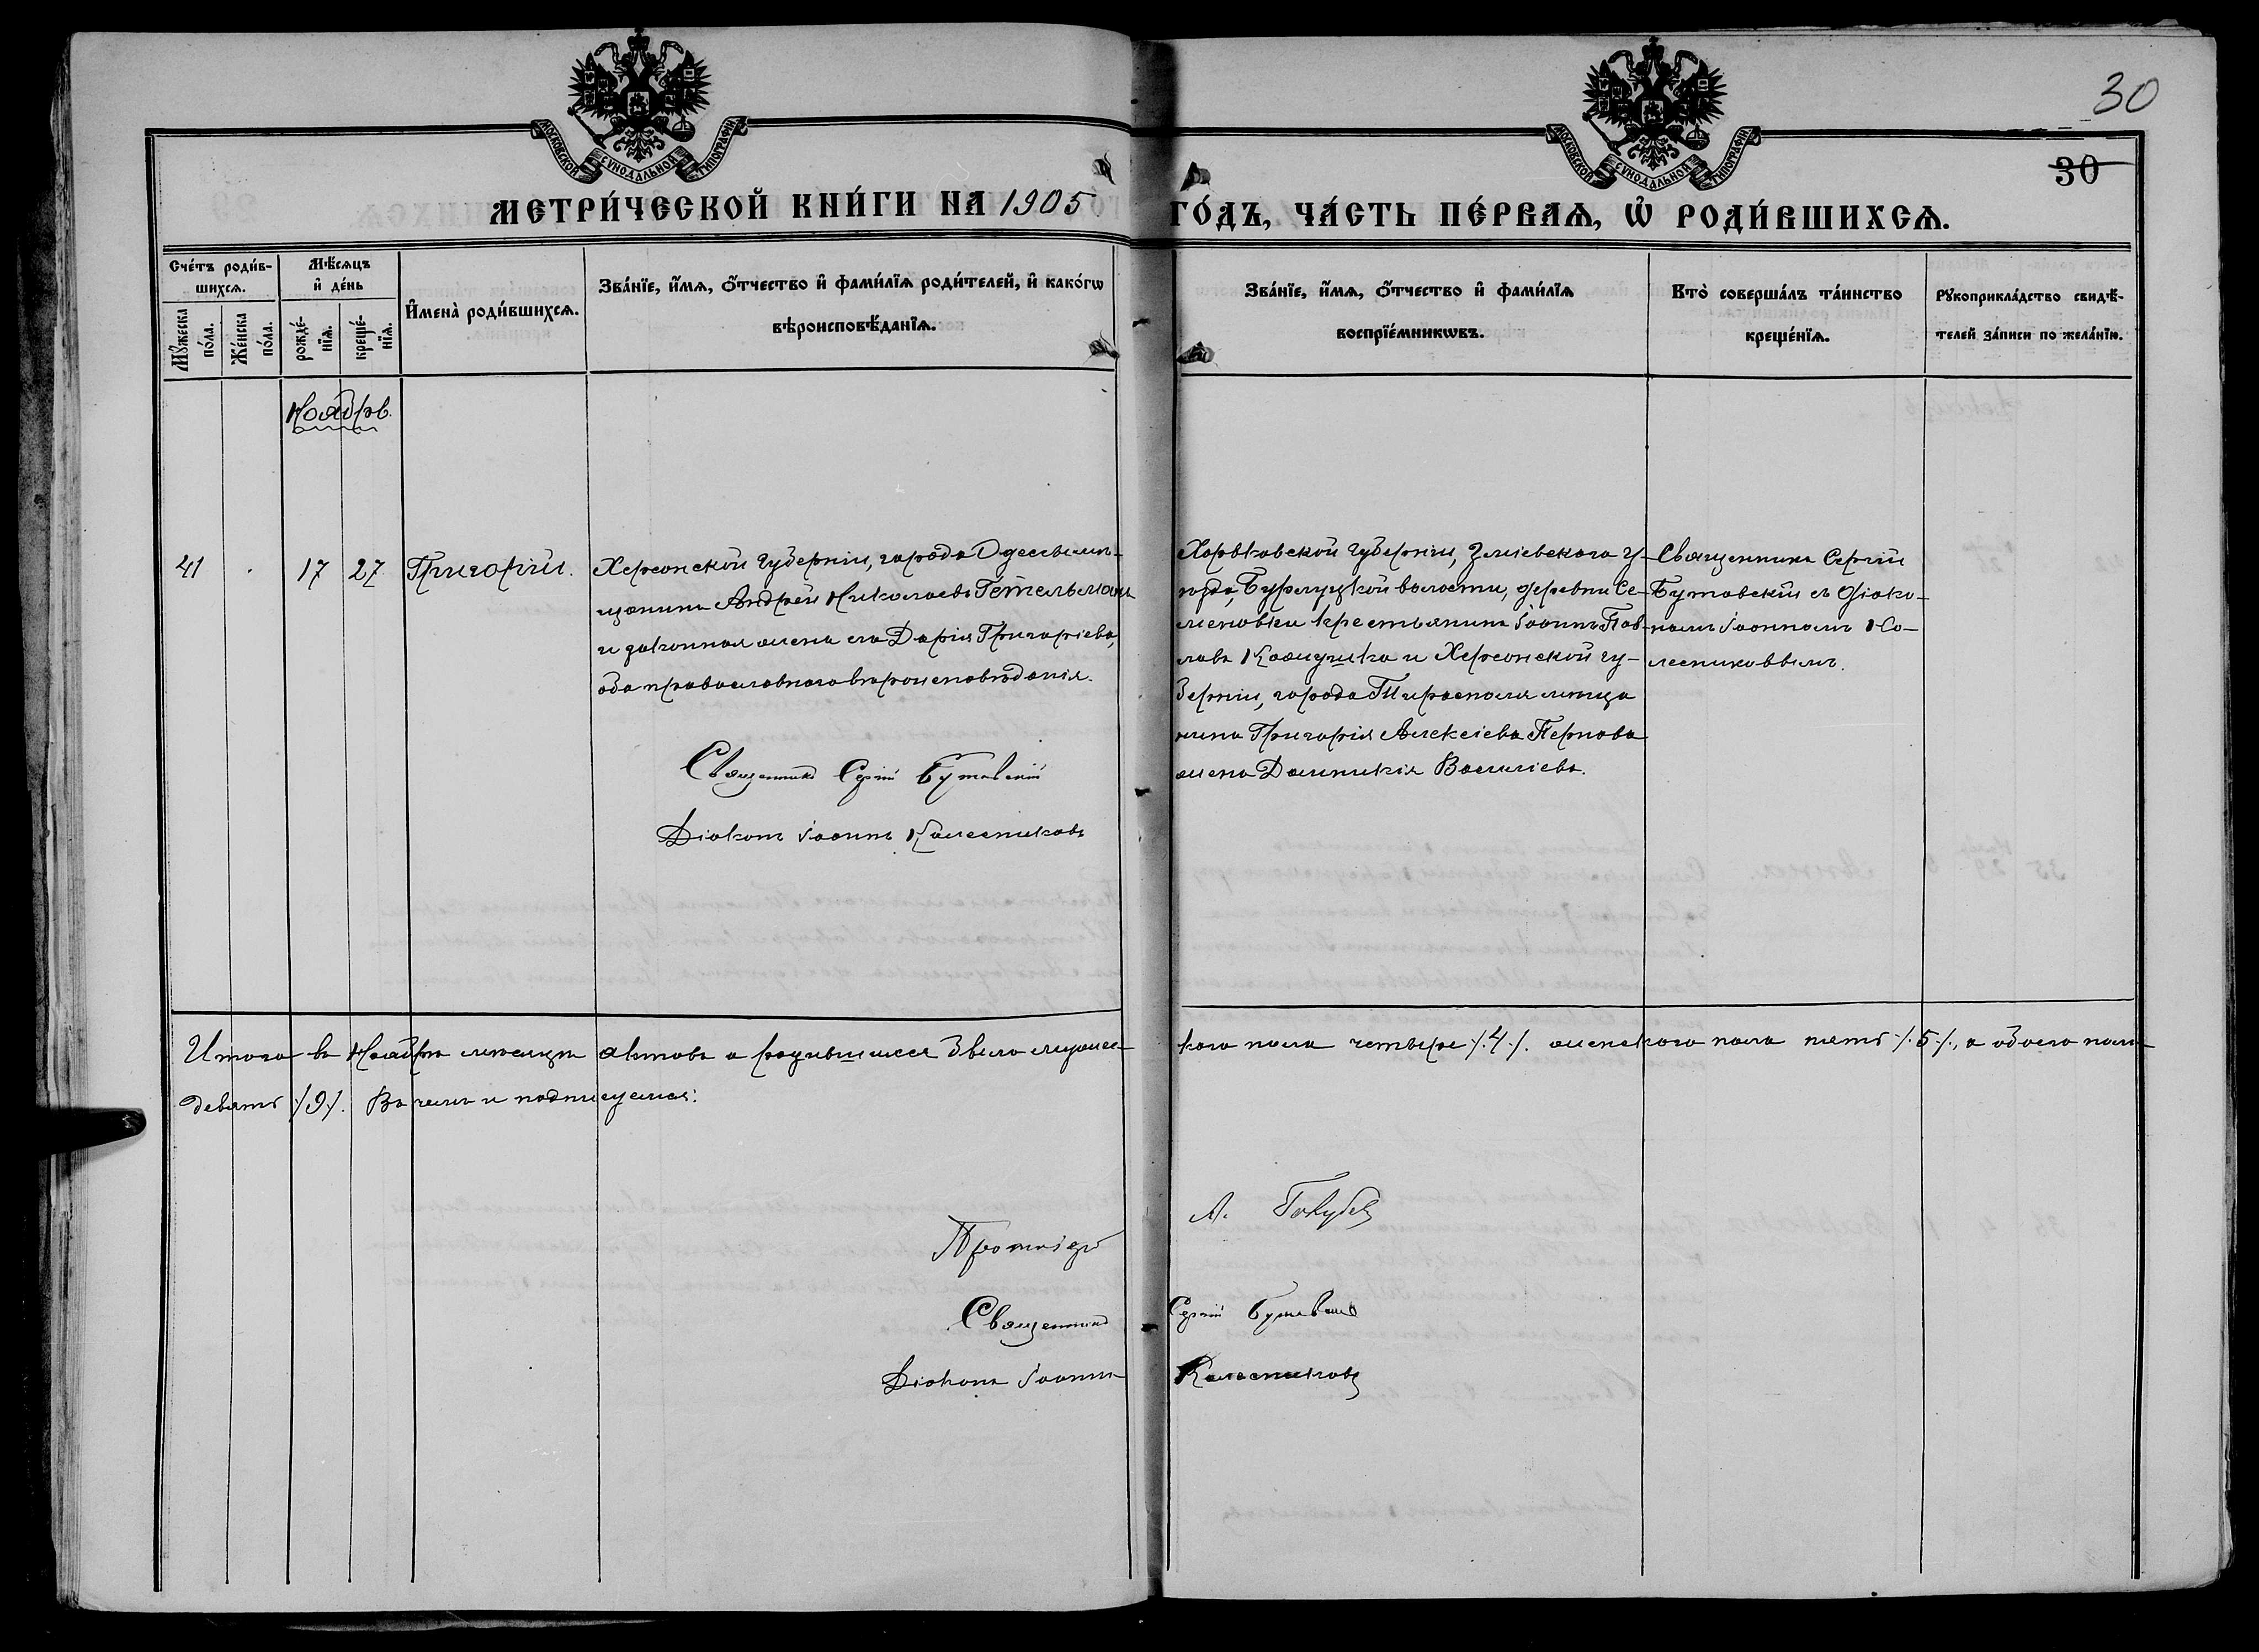 30
30
МОСКОВСКОЙ СУНОДАЛЬНОЙ ТИПОГРАФІИ
МОСКОВСКОЙ СУНОДАЛЬНОЙ ТИПОГРАФІИ
МЕТРИ́ЧЕСКОЙ КНИ́ГИ НА 1905 ГО́ДЪ, ЧА́СТЬ ПЕ́РВАѦ, Ѡ҆ РОДИ́ВШИХСѦ.
Сче́тъ роди́в-
шихсѧ.
Мꙋ́жеска
по́ла.
Же́нска
по́ла.
Мѣ́сѧцъ
и҆ де́нь
рожде́-
нїѧ.
креще́-
нїѧ.
И҆мена̀ роди́вшихсѧ.
Зва́нїе, и҆́мѧ, ѻ҆́тчество и҆ фами́лїѧ роди́телей, и҆ како́гѡ
вѣроисповѣ́данїѧ.
Зва́нїе, и҆́мѧ, ѻ҆́тчество и҆ фами́лїѧ
воспрїе́мникѡвъ.
Кто̀ соверша́лъ та́инство
креще́нїѧ.
Рꙋкоприкла́дство свидѣ́-
телей за́писи по жела́нїю.
Ноябрь.
41 . 17 27 Григорій.
Херсонской губерніи, города Одессы мѣ-
щанинъ Андрей Николаевъ Гетельманъ
и законная жена его Дарія Григоріева,
оба православнаго вѣроисповѣданія.
Священникъ Сергій Бутовскій
Діаконъ Іоаннъ Колесниковъ
Харьковской губерніи, Зміевского у-
ѣзда, Бурлуцкой волости, деревни Се-
меновки крестьянинъ Іоаннъ Пав-
ловъ и Херсонской гу-
берніи, города Тирасполя мѣща
нина Григорія Алексіева Пернова
жена Домникія Василіева.
Священникъ Сергій
Бутовскій съ діако-
номъ Іоанномъ Ко-
лесниковымъ.
Итого въ Ноябрѣ мѣсяцѣ актовъ о родившихся было мужес-
кого пола четыре /.4./. женского пола пять /.5./., а обоего пола
девять /.9./. Въ чемъ и подписуемся:
А. Голубев
Священникъ Сергій Бутовскій
Діаконъ Іоаннъ Колесниковъ